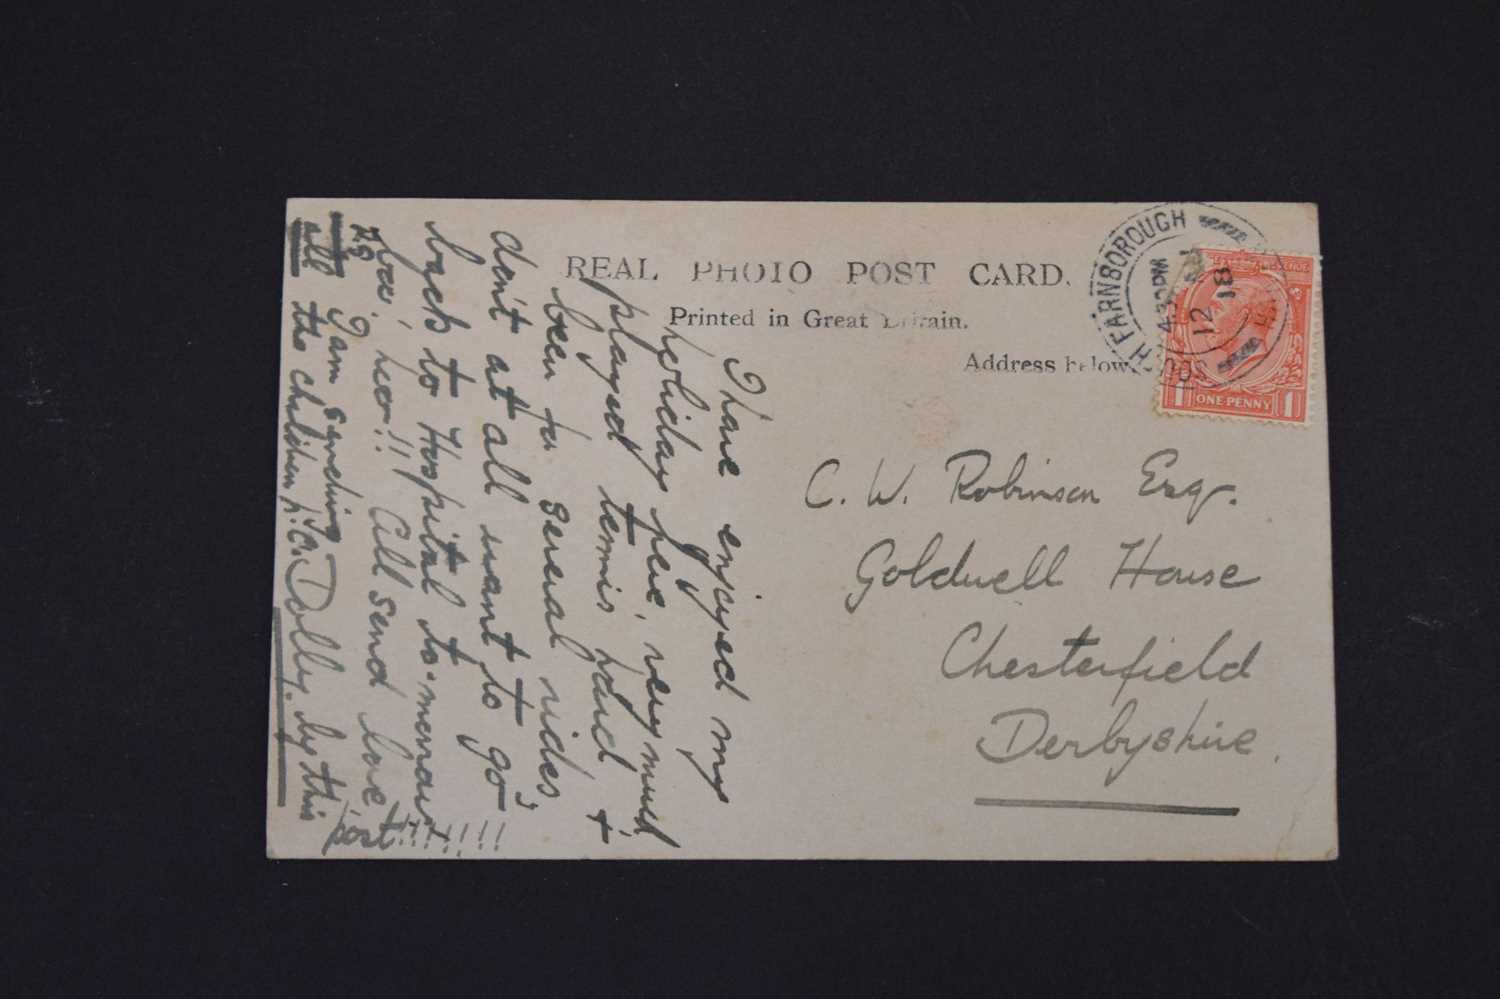 REAL PHOTO POST CARD.
Printed in Great Britain.
Address below
H FARNBOROUGH
4.30PM
12
18
ONE PENNY
1 1
C. W. Robinson Esq.
Goldwell House
Chesterfield
Derbyshire.
I have enjoyed my
holiday here, very much
played tennis hard +
been for several rides,
don't at all want to go
back to Hospital to-morrow
boo', hoo!! All send love,
I am sending
all the children Dolly. by this
post!!!!!!!!